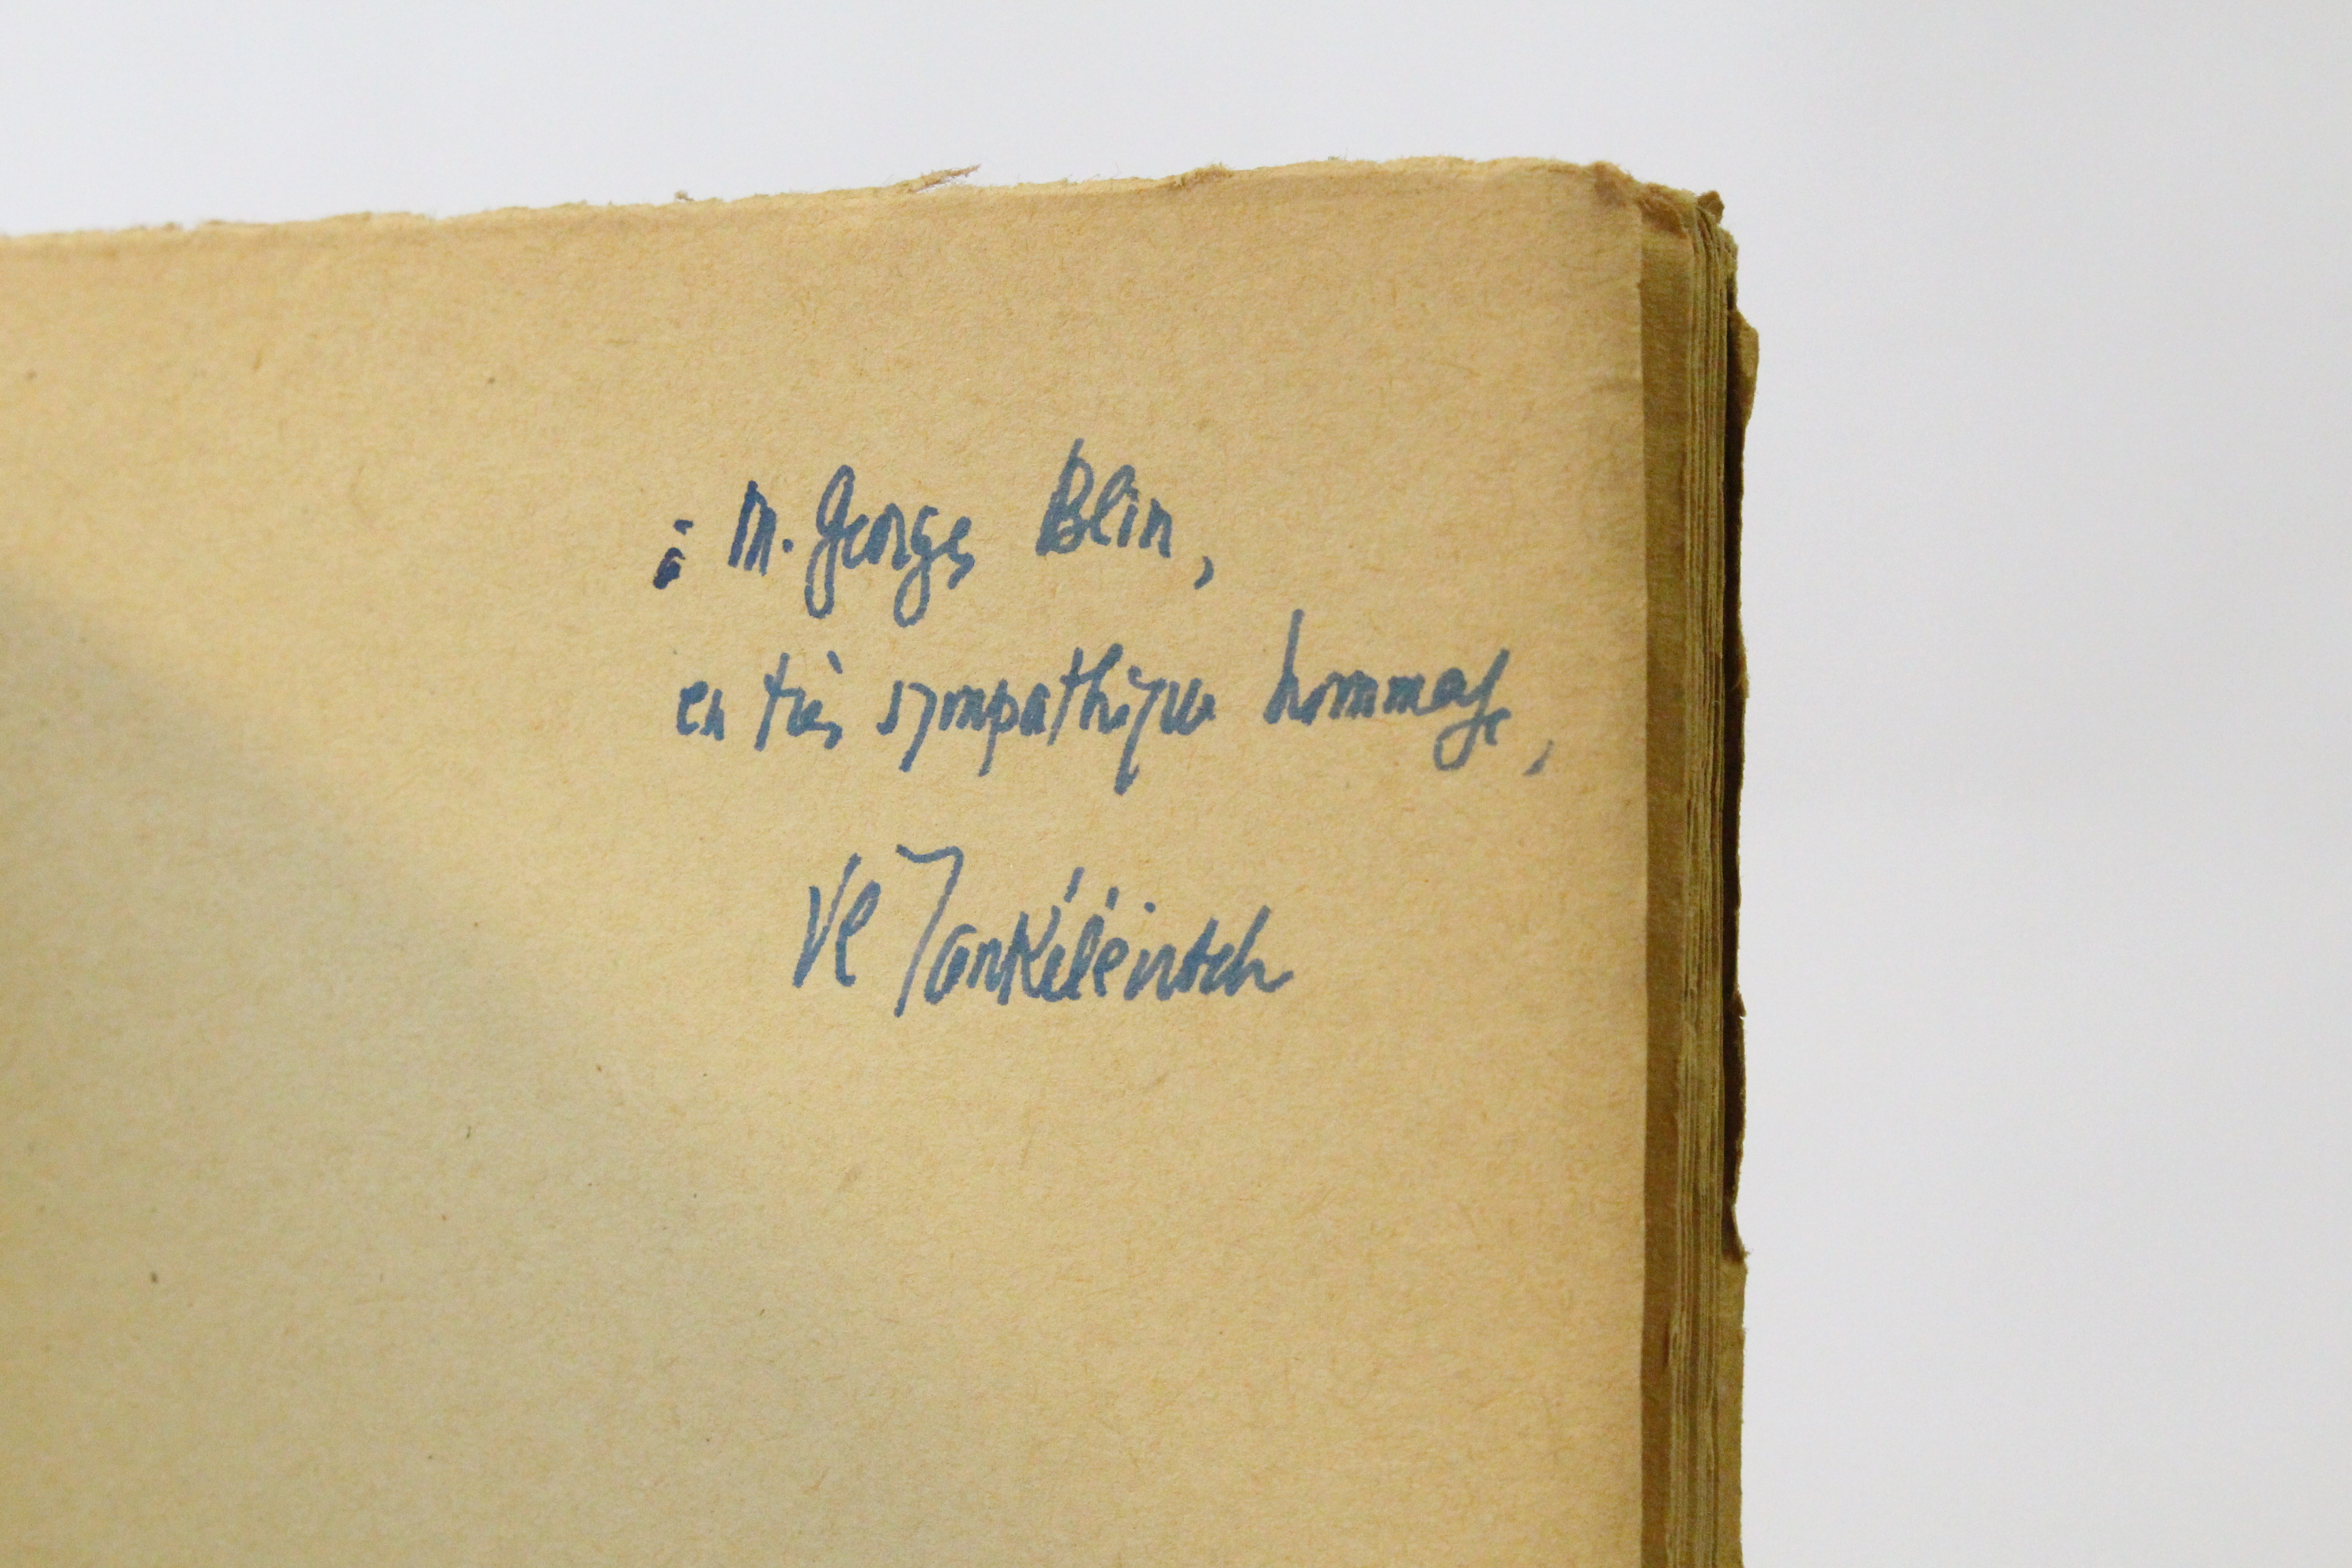 à M. Georges Blin,
en très sympathique hommage,
Vl Jankélévitch